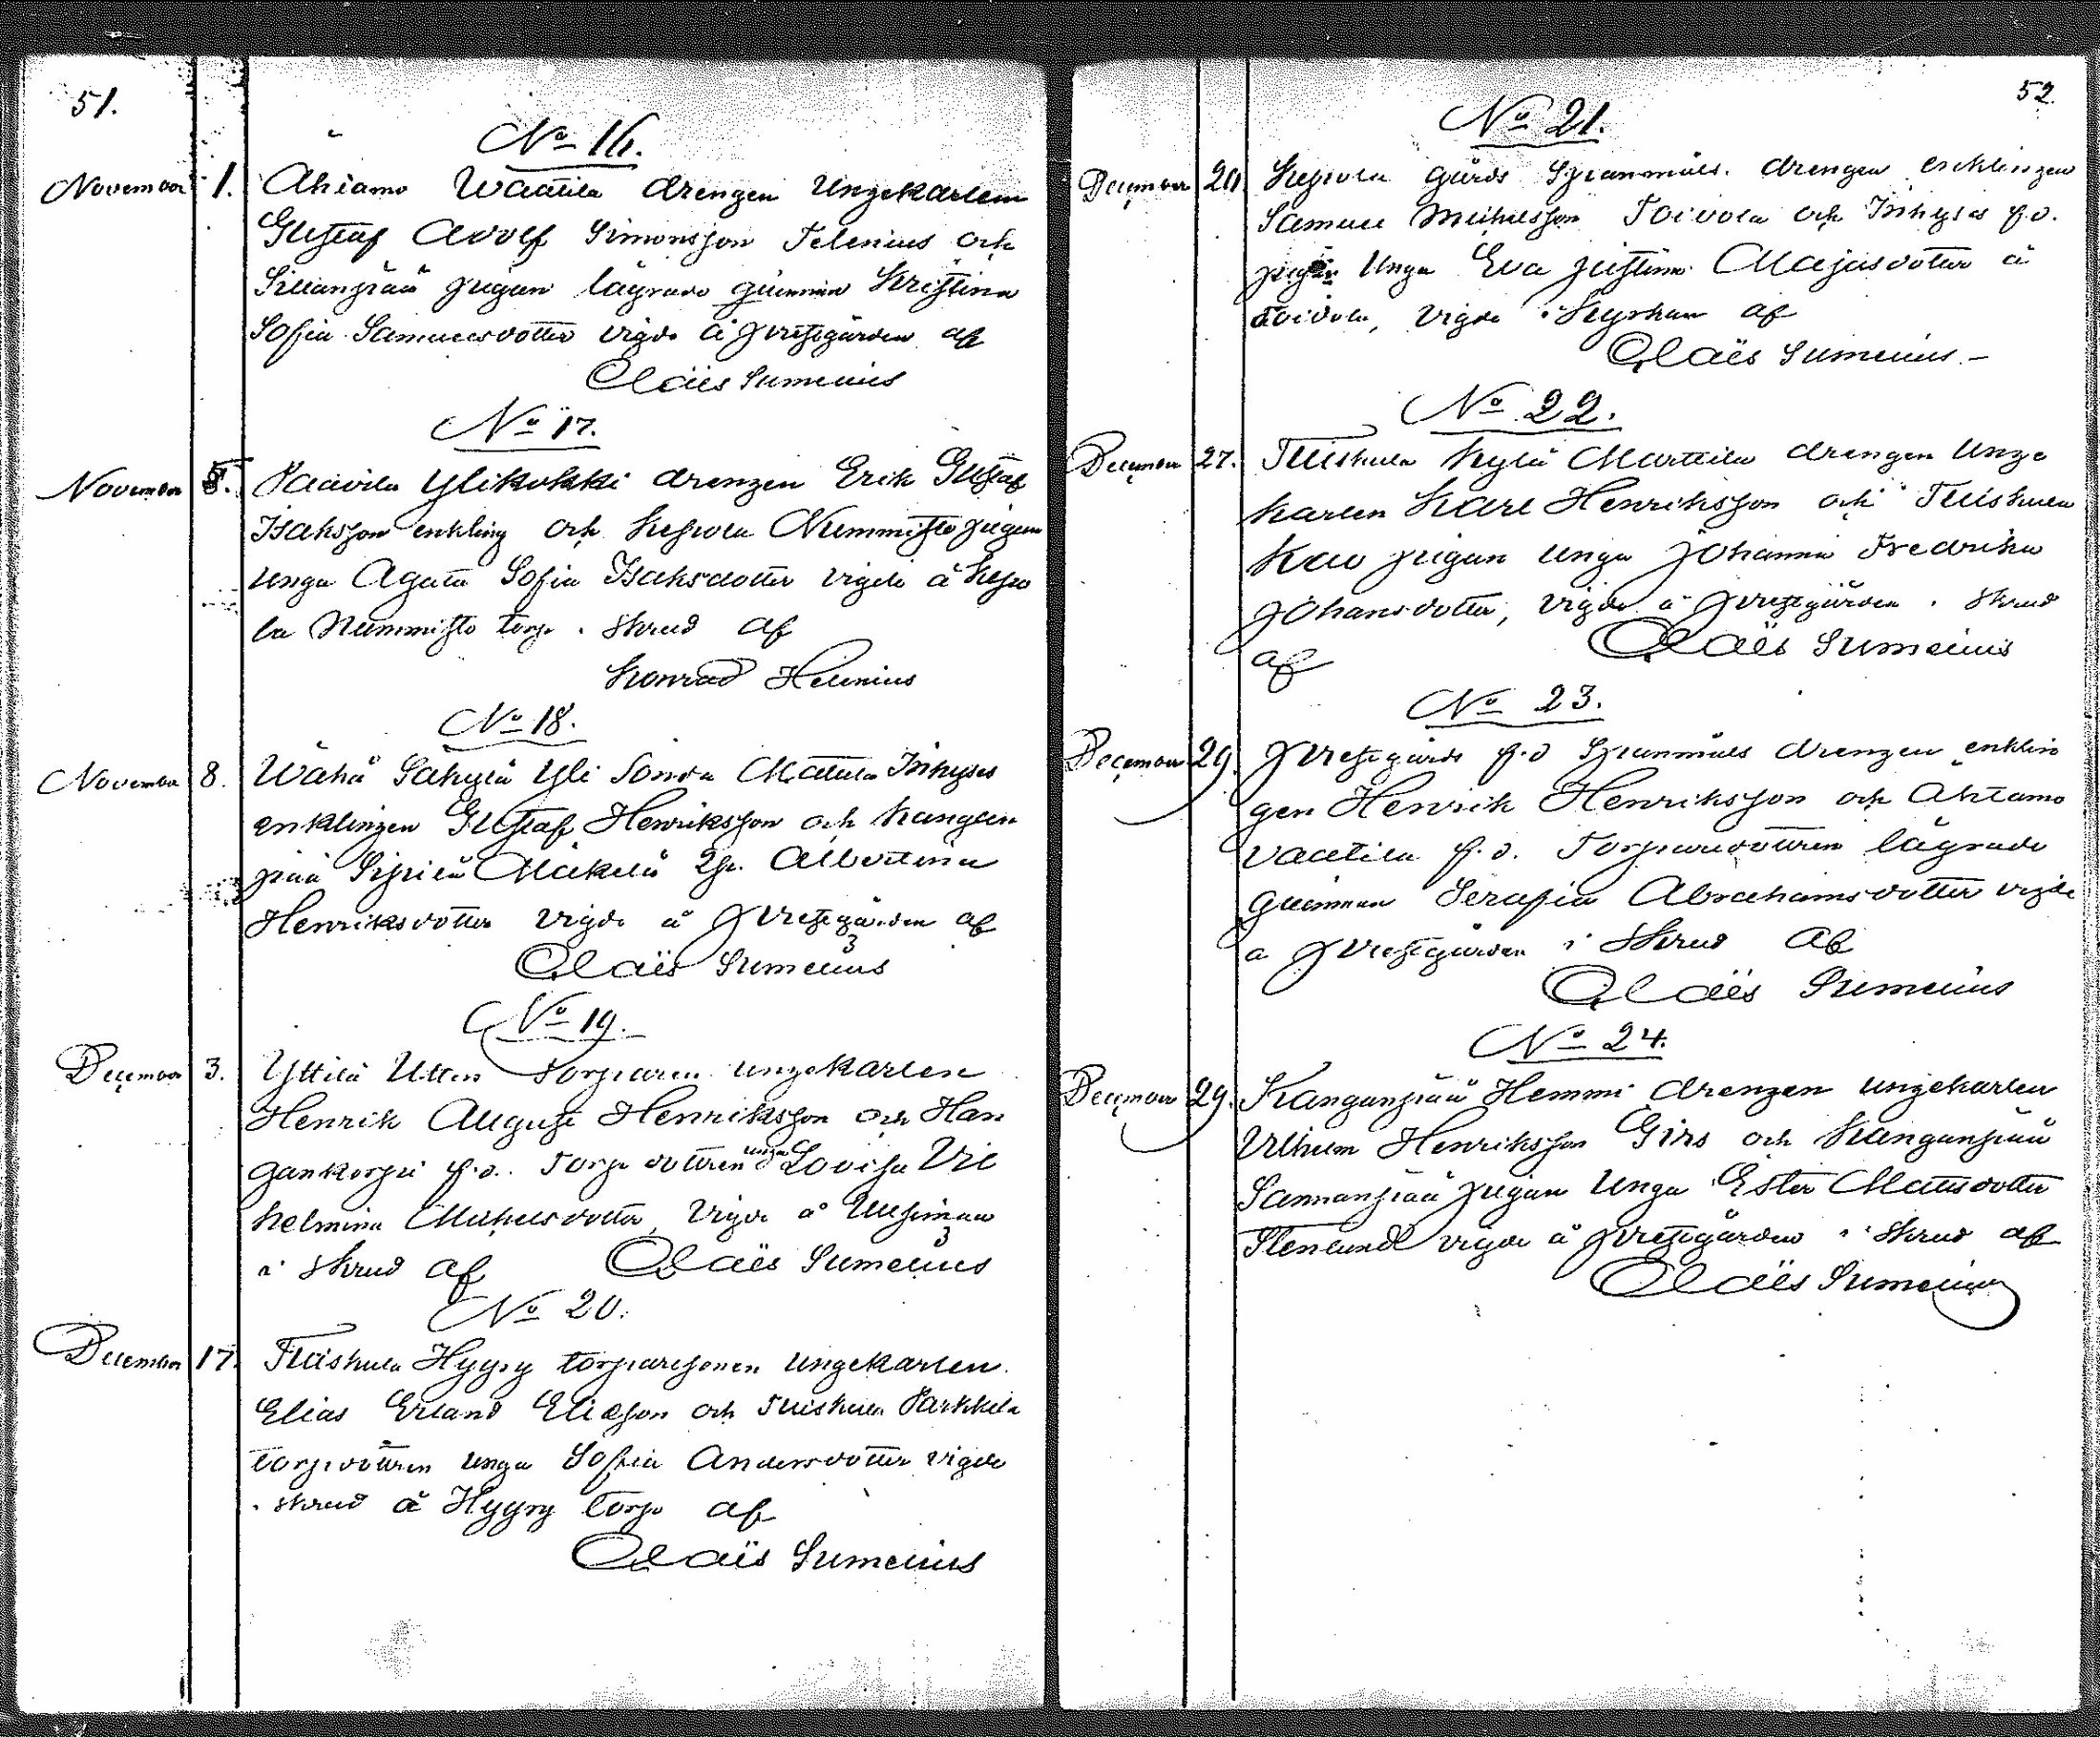 51.
No 16.
November 1. Ahtamo Waatila drengen Ungekarlen
Gustaf Adolf Simonsson Telenius och
Sillanpää pigan lägrade qvinnan Kristina
Sofia Samuelsdotter vigde å prestgården af
Claës Sumelius
No 17.
November 5. Paavila Ylikokki drengen Erik Gustaf
Isaksson enkling och Kepola Nummisto pigan
unga Agata Sofia Isaksdotter vigde å Kepo
la Nummisto torp i skrud af
Konrad Helenius
No 18.
November 8. Wähä Säkylä Yli Sonda Mattila Inhyses
enklingen Gustaf Henriksson och Kangan
pää Sipilä Mäkelä Albertina
Henriksdotter vigde å Prestgården af
Claës Sumelius
No 19.
December 3. Yttilä Utters Torparen ungekarlen
Henrik August Henriksson och Han
gankorpi f.d. Torp dottren unga Lovisa Vil
helmina Michelsdotter, vigde å
i skrud af Claës Sumelius
No 20.
December 17. Tuiskula Hyypy torparesonen ungekarlen
Elias Erland Eliasson och Tuiskula Parkkila
torpdottren unga Sofia Andersdotter vigde
i skrud å Hyypy torp af
Claës Sumelius
52.
No 21.
December 20 Kepola gårds Spanmåls. drengen enklingen
Samuel Michelsson Toivola och Inhyses f.d.
pigan Unga Eva Justina Majasdotter å
Toivola, vigde i Kyrkan af
Claës Sumelius.-
No 22.
December 27. Tuiskula Kylä Marttila drengen Unge
karlen Karl Henriksson och Tuiskula
pigan unga Johanna Fredrika
Johansdotter, vigde å Prestgården i skrud
af Claës Sumelius
No 23.
December 29. Prestgårds f.d Spanmåls drengen enklin
gen Henrik Henriksson och Ahtamo
Vaatila f.d. Torparedottren lägrade
qvinnan Serafia Abrahamsdotter vigde
å Prestgården i Skrud af
Claës Sumelius
No 24.
December 29. Kanganpää Hemmi drengen ungekarlen
Vilhelm Henriksson Girs och Kanganpää
Sannanpää pigan Unga Ester Mattsdotter
Stenlund vigde å prestgården i skrud af
Claës Sumelius